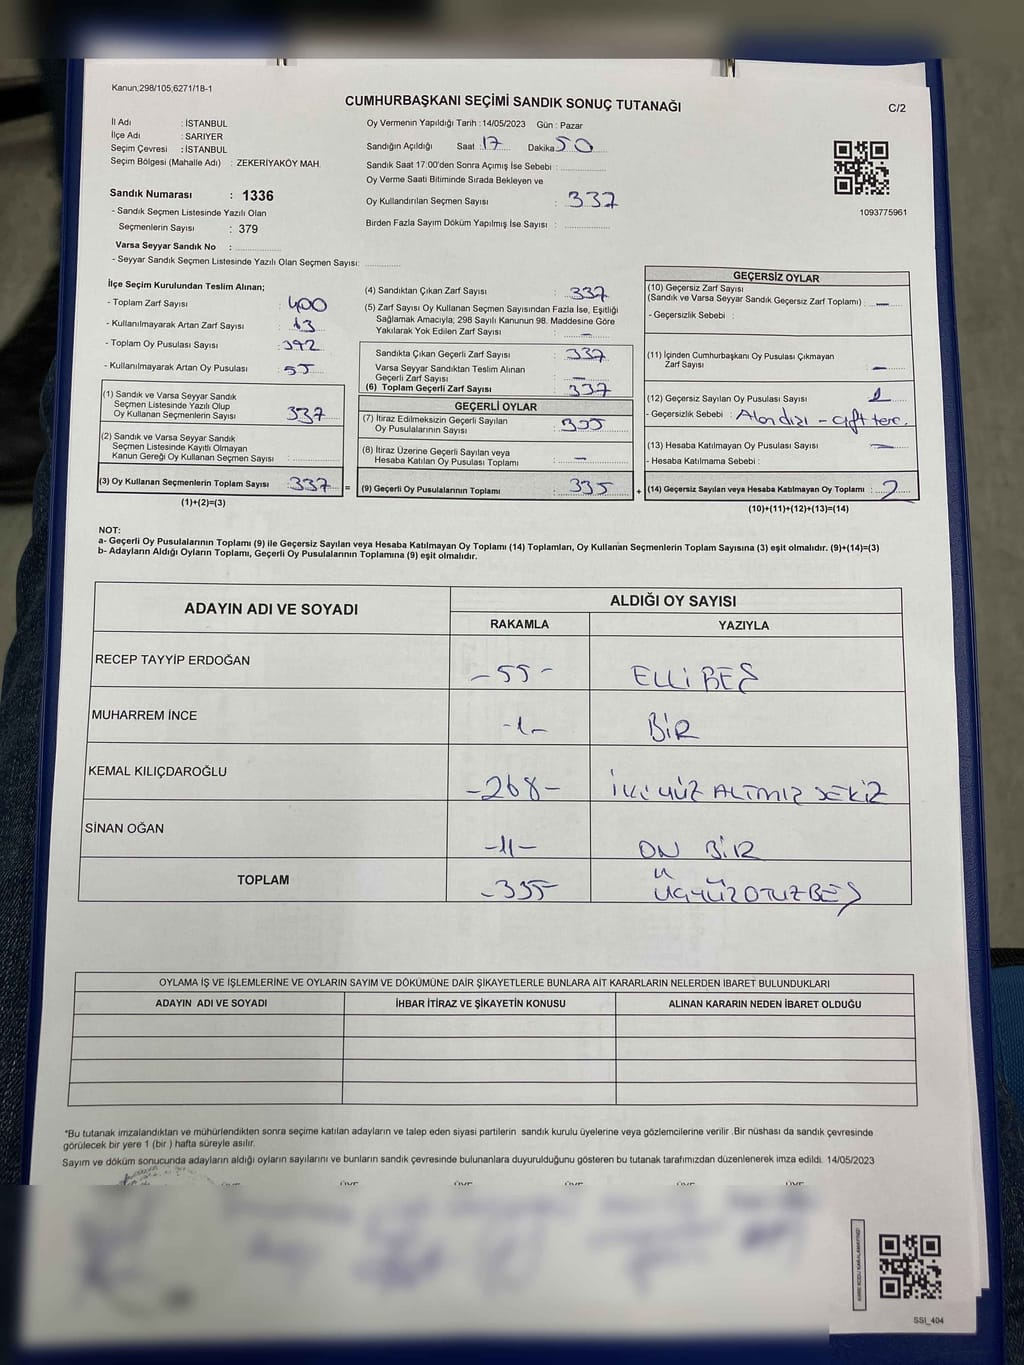 Kanun;298/105,6271/18-1
CUMHURBAŞKANI SEÇİMİ SANDIK SONUÇ TUTANAĞI
C/2
İl Adı : İSTANBUL
İlçe Adı : SARIYER
Seçim Çevresi : İSTANBUL
Seçim Bölgesi (Mahalle Adı) : ZEKERİYAKÖY MAH.
Sandık Numarası : 1336
- Sandık Seçmen Listesinde Yazılı Olan
Seçmenlerin Sayısı : 379
Varsa Seyyar Sandık No :
- Seyyar Sandık Seçmen Listesinde Yazılı Olan Seçmen Sayısı:
Oy Vermenin Yapıldığı Tarih : 14/05/2023 Gün : Pazar
Sandığın Açıldığı Saat : 17 Dakika 50
Sandık Saat 17:00'den Sonra Açımış İse Sebebi :
Oy Verme Saati Bitiminde Sırada Bekleyen ve
Oy Kullandırılan Seçmen Sayısı : 337
Birden Fazla Sayım Döküm Yapılmış İse Sayısı :
1093775961
İlçe Seçim Kurulundan Teslim Alınan;
- Toplam Zarf Sayısı : 400
- Kullanılmayarak Artan Zarf Sayısı :
- Toplam Oy Pusulası Sayısı : 392
- Kullanılmayarak Artan Oy Pusulası : 55
(1) Sandık ve Varsa Seyyar Sandık
Seçmen Listesinde Yazılı Olup
Oy Kullanan Seçmenlerin Sayısı : 337
(2) Sandık ve Varsa Seyyar Sandık
Seçmen Listesinde Kayıtlı Olmayan
Kanun Gereği Oy Kullanan Seçmen Sayısı :
(3) Oy Kullanan Seçmenlerin Toplam Sayısı : 337 =
(1)+(2)=(3)
(4) Sandıktan Çıkan Zarf Sayısı : 337
(5) Zarf Sayısı Oy Kullanan Seçmen Sayısından Fazla İse, Eşitliği
Sağlamak Amacıyla; 298 Sayılı Kanunun 98. Maddesine Göre
Yakılarak Yok Edilen Zarf Sayısı : -
Sandıkta Çıkan Geçerli Zarf Sayısı : 337
Varsa Seyyar Sandıktan Teslim Alınan
Geçerli Zarf Sayısı : -
(6) Toplam Geçerli Zarf Sayısı : 337
GEÇERLİ OYLAR
(7) İtiraz Edilmeksizin Geçerli Sayılan
Oy Pusulalarının Sayısı : 335
(8) İtiraz Üzerine Geçerli Sayılan veya
Hesaba Katılan Oy Pusulası Toplamı : -
(9) Geçerli Oy Pusulalarının Toplamı : 335 +
GEÇERSİZ OYLAR
(10) Geçersiz Zarf Sayısı
(Sandık ve Varsa Seyyar Sandık Geçersiz Zarf Toplamı) : -
- Geçersizlik Sebebi :
(11) İçinden Cumhurbaşkanı Oy Pusulası Çıkmayan
Zarf Sayısı : -
(12) Geçersiz Sayılan Oy Pusulası Sayısı :
- Geçersizlik Sebebi : - çift terc.
(13) Hesaba Katılmayan Oy Pusulası Sayısı : -
- Hesaba Katılmama Sebebi :
(14) Geçersiz Sayılan veya Hesaba Katılmayan Oy Toplamı : 2
(10)+(11)+(12)+(13)=(14)
NOT:
a- Geçerli Oy Pusulalarının Toplamı (9) ile Geçersiz Sayılan veya Hesaba Katılmayan Oy Toplamı (14) Toplamları, Oy Kullanan Seçmenlerin Toplam Sayısına (3) eşit olmalıdır. (9)+(14)=(3)
b- Adayların Aldığı Oyların Toplamı, Geçerli Oy Pusulalarının Toplamına (9) eşit olmalıdır.
ADAYIN ADI VE SOYADI
ALDIĞI OY SAYISI
RAKAMLA YAZIYLA
RECEP TAYYİP ERDOĞAN -55- ELLİ BEŞ
MUHARREM İNCE -1- BİR
KEMAL KILIÇDAROĞLU -268- İKİ YÜZ ALTMIŞ SEKİZ
SİNAN OĞAN -11- ON BİR
TOPLAM -335- ÜÇYÜZOTUZBEŞ
OYLAMA İŞ VE İŞLEMLERİNE VE OYLARIN SAYIM VE DÖKÜMÜNE DAİR ŞİKAYETLERLE BUNLARA AİT KARARLARIN NELERDEN İBARET BULUNDUKLARI
ADAYIN ADI VE SOYADI İHBAR İTİRAZ VE ŞİKAYETİN KONUSU ALINAN KARARIN NEDEN İBARET OLDUĞU
*Bu tutanak imzalandıktan ve mühürlendikten sonra seçime katılan adayların ve talep eden siyasi partilerin sandık kurulu üyelerine veya gözlemcilerine verilir .Bir nüshası da sandık çevresinde
görülecek bir yere 1 (bir ) hafta süreyle asılır.
Sayım ve döküm sonucunda adayların aldığı oyların sayılarını ve bunların sandık çevresinde bulunanlara duyurulduğunu gösteren bu tutanak tarafımızdan düzenlenerek imza edildi. 14/05/2023
SSI_404